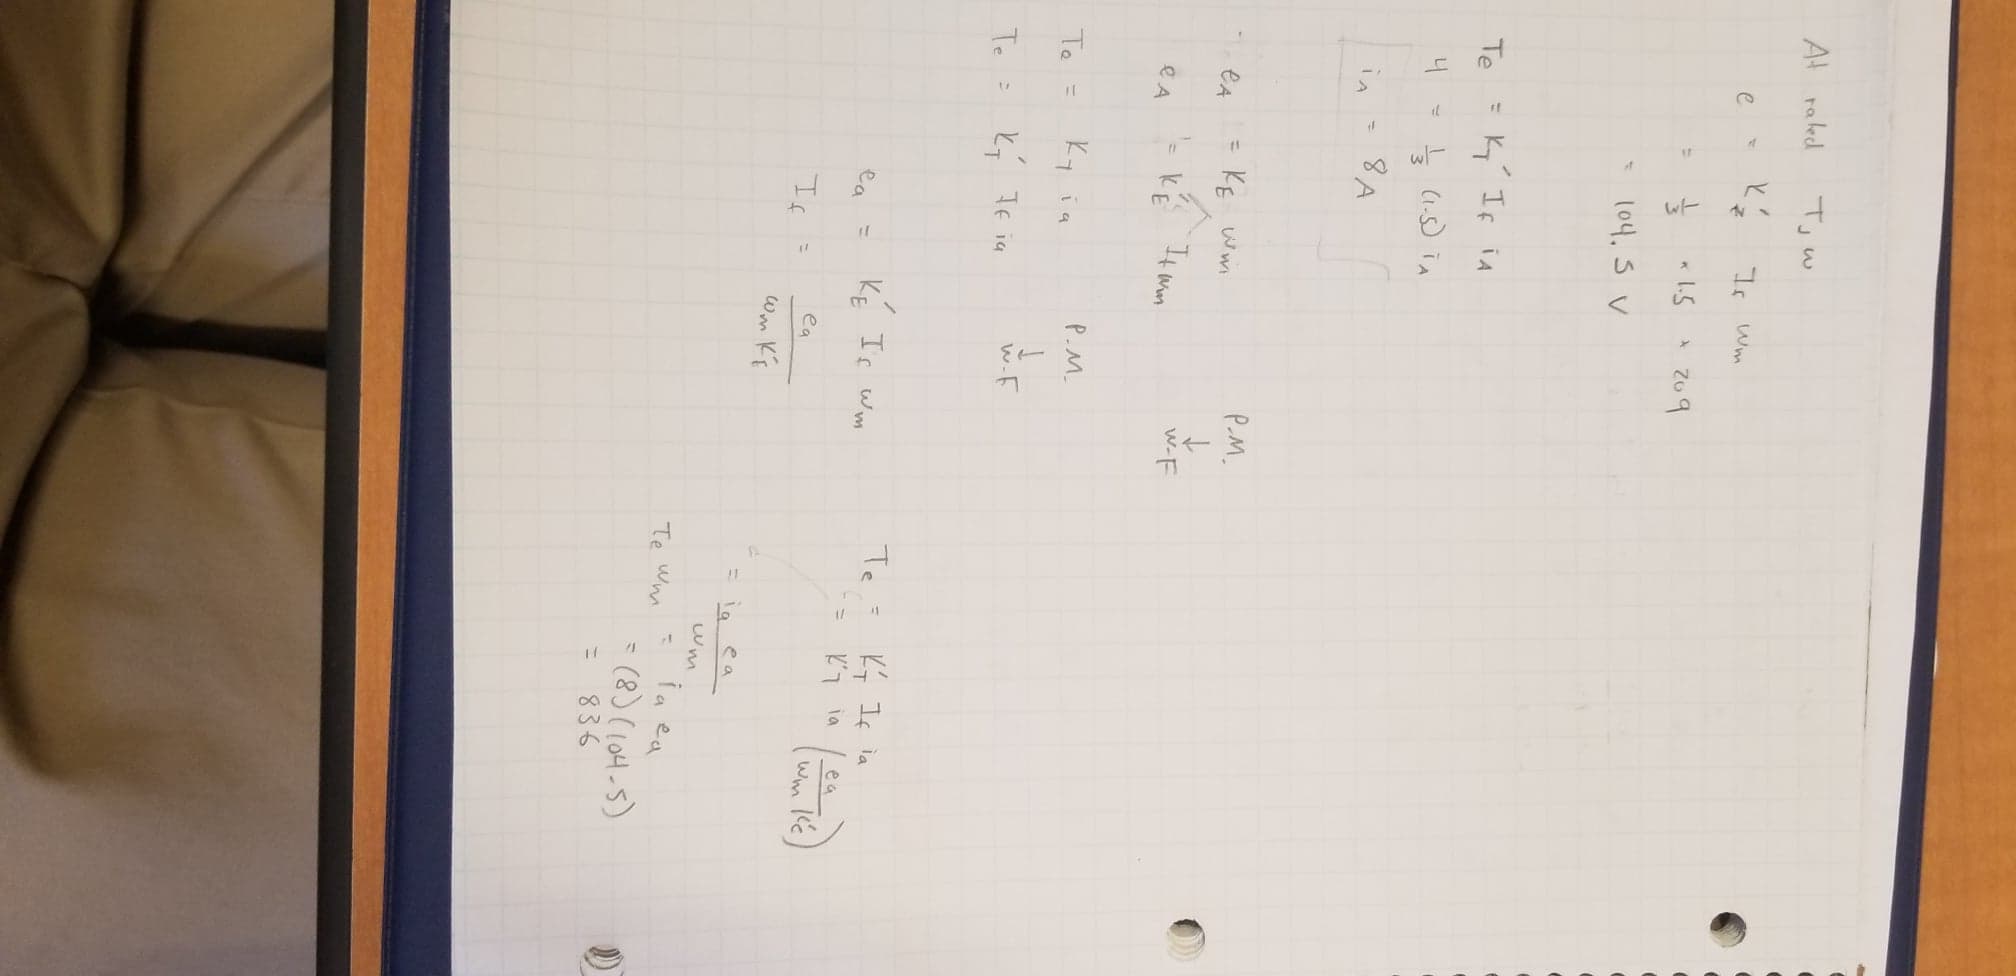 At rated T, w
e = K'E If wm
= 1/3 × 1.5 × 209
= 104.5 V
Te = KT' If iA
4 = 1/3 (1.5) iA
iA = 8A
eA = KE wm P.M.
↓
eA = K'E If wm W-F
Te = KT ia P.M.
↓
Te = K'T If ia W-F
ea = K'E If wm
If = ea / wm K'E
Te = K'T If ia
= K'T ia (ea / wm K'E)
= ia ea / wm
Te wm = ia ea
= (8)(104.5)
= 836